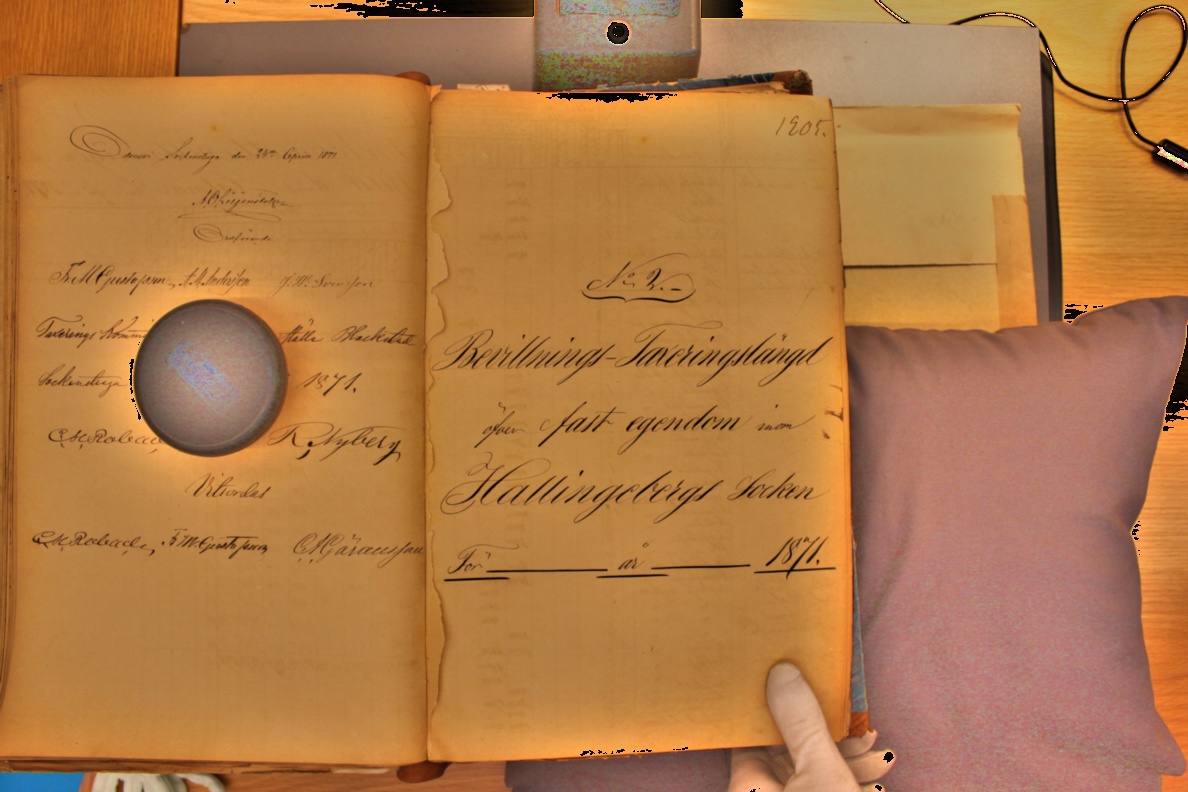 Sockenstuga den 24de April 1871
Ordförande
Fr. M. Gustafsson, A. M. Andersson J. M. Svensson
Taxerings Ställe Blackstad
Sockenstuga 1871.
R. Nyberg
Vitsordas
Fr. M. Gustafsson C. M. Göransson
1905.
No 2.
Bevillnings-Taxeringslängd
öfver fast egendom inom
Hallingebergs Socken
För år 1871.